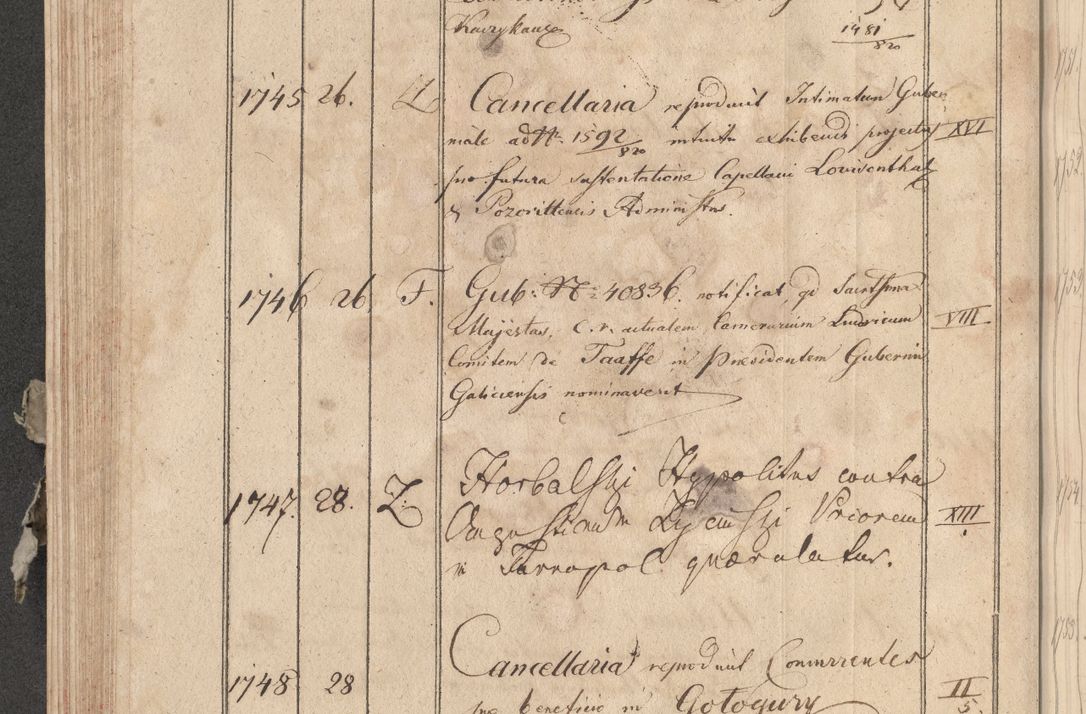 Kaczykauze 1481/820
1745 26. Z Cancellaria reproducit Intimatum Guber
niale ad Nr. 1592/820 intuitu exhibendi projectus XVI
pro futura sustentatione Capellani Lovisenthal
& Pozorittensis Administr.
1746 26 F. Gub: Nr: 40836. notificat, qd Sacrtssma
Majestas, C. r. actualem Camerarium Ludvicum VIII
Comitem de Taaffe in Praesidentem Gubernii
Galiciensis nominaverit
1747. 28. Z. Horbalski Hypolitus contra
Augustinum Priorem XIII
in Tarnopol quaerulatur.
1748 28 Cancellaria reproducit Concurrentes II/5.
pro beneficio in Gotogury
1751.
1752.
1753
1754
1755